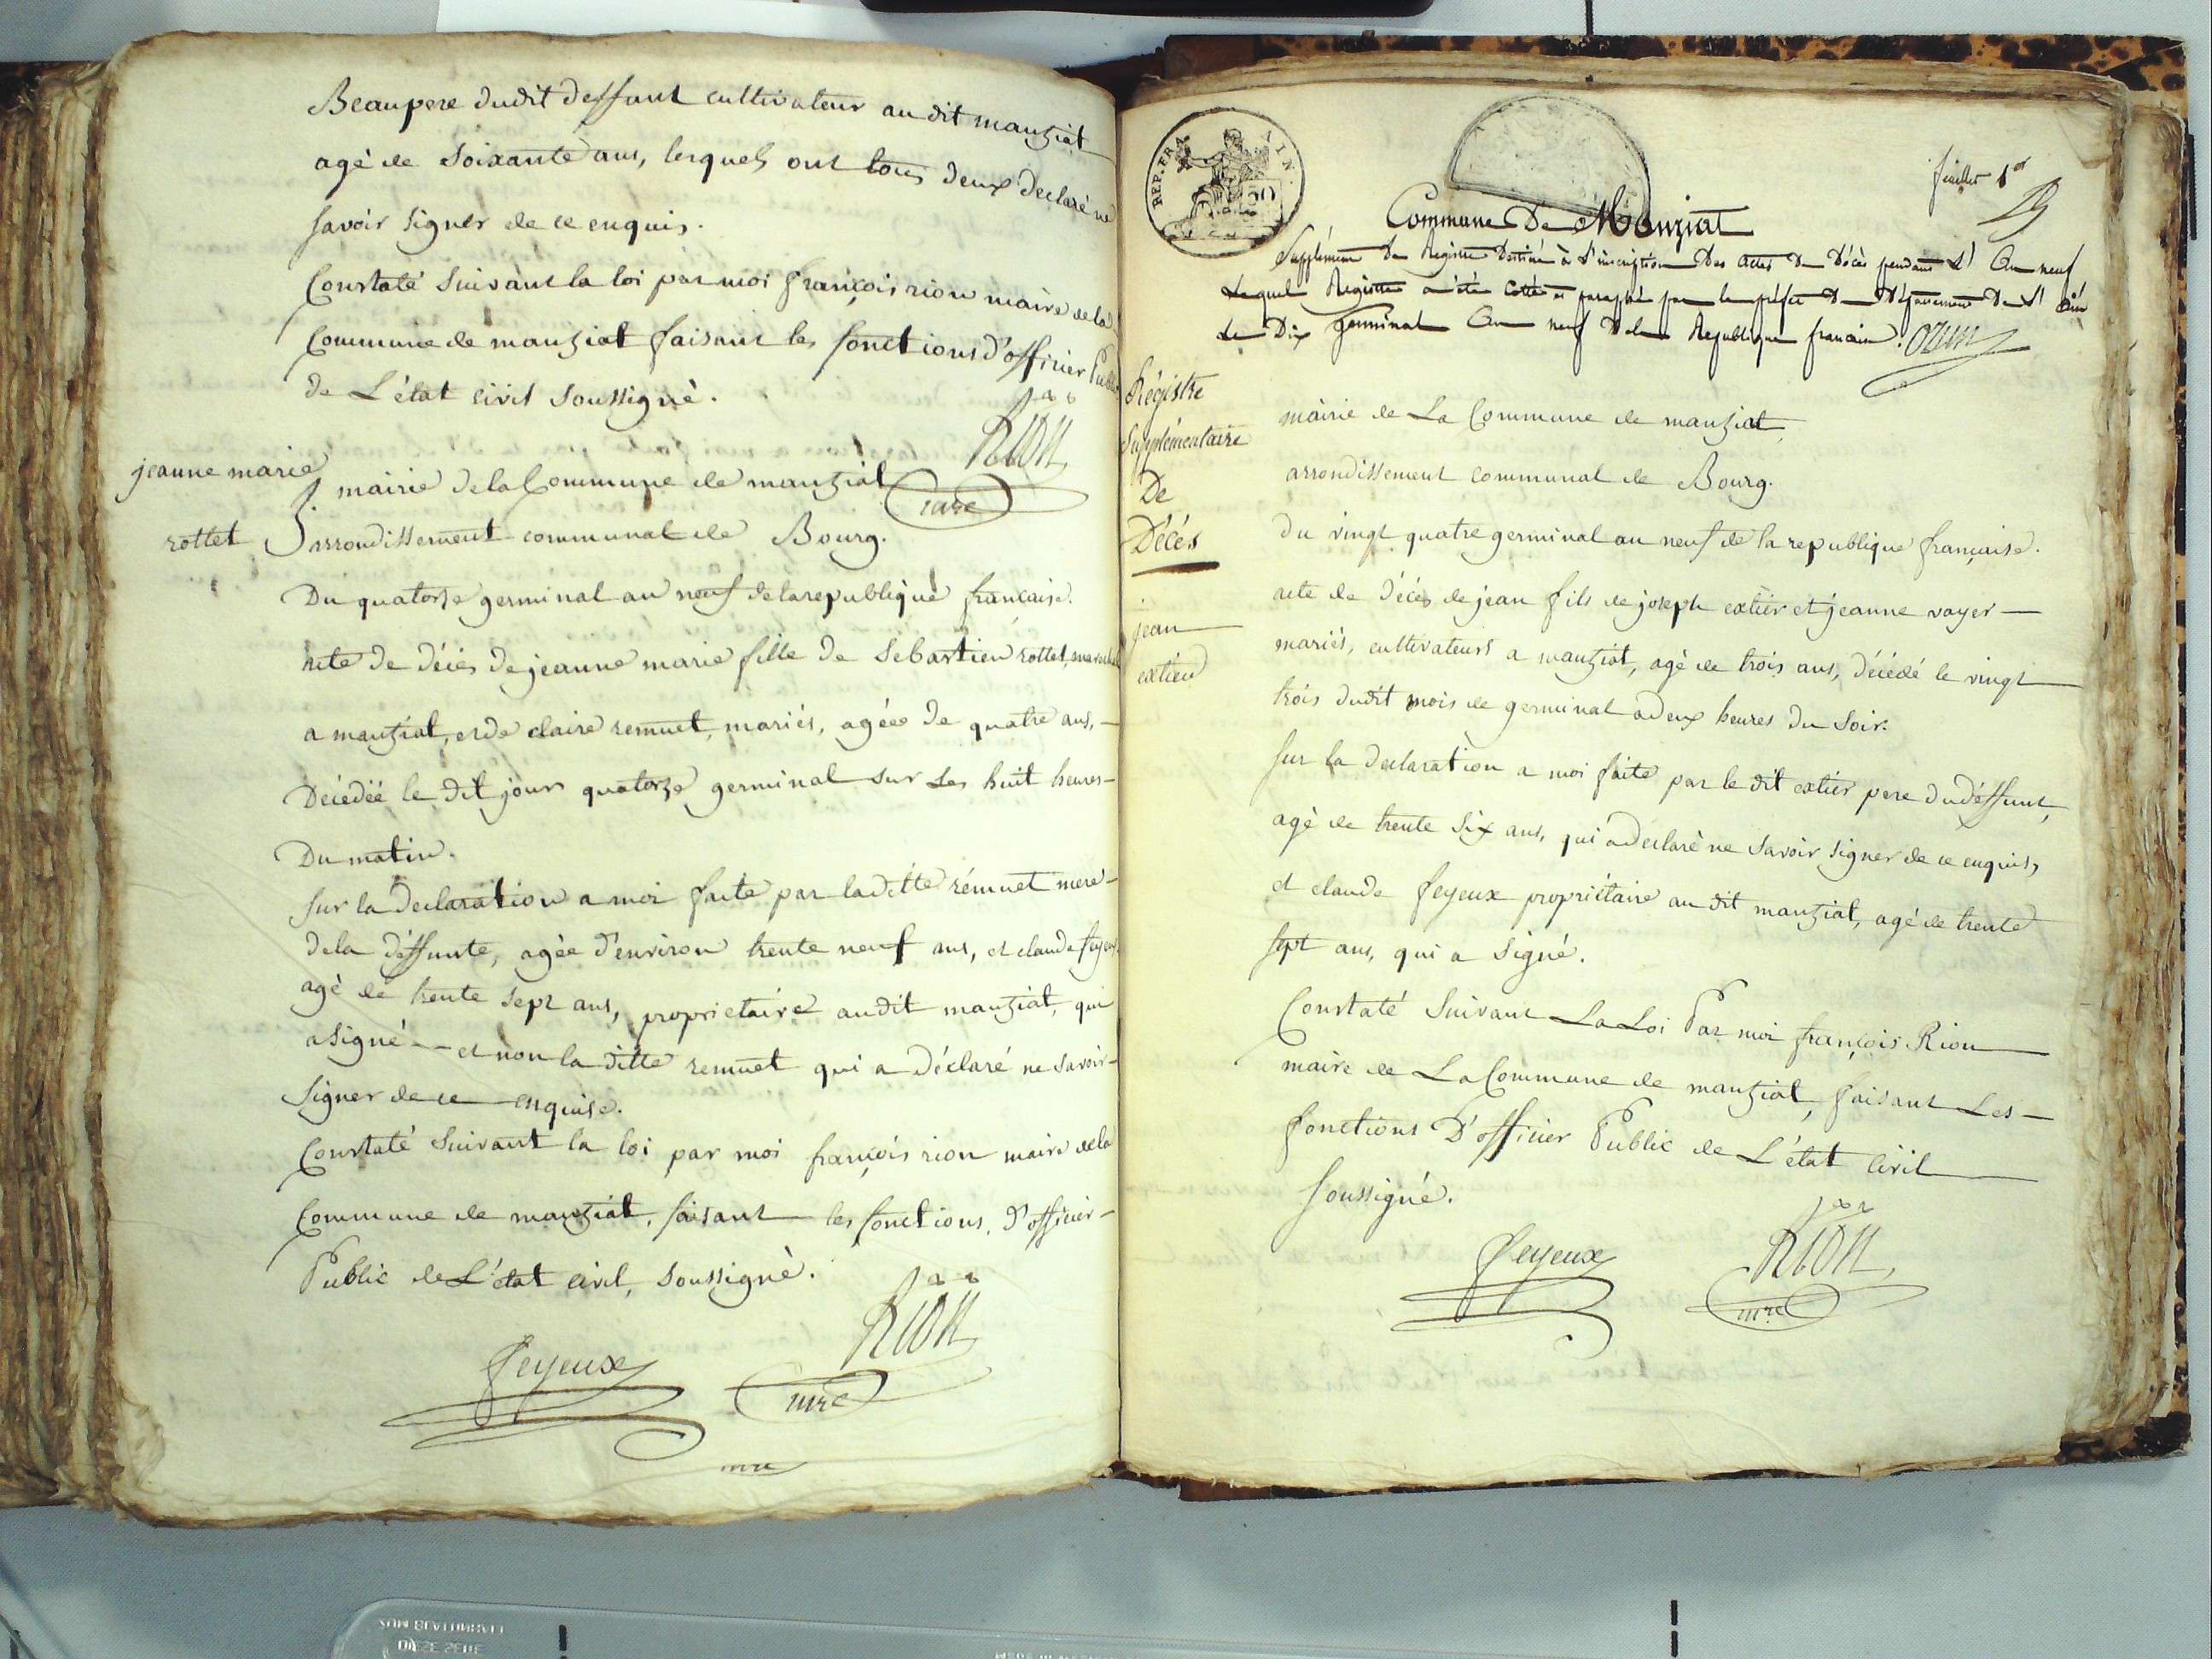 Beaupere dudit deffunt cultivateur au dit manziat
agé de soixante ans, lesquels ont tous deux declaré ne
savoir signer de ce enquis.
Constaté suivant la loi par moi françois rion maire de la
Commune de manziat faisant les fonctions d'officier Public
de L'état civil soussigné.
Rion
mre
jeanne marie
rottet
mairie de la Commune de manziat
arrondissement communal de Bourg.
Du quatorze germinal an neuf de la republique française.
acte de décés de jeanne marie fille de Sebastien rottet,
a manziat, et de claire remuet, mariés, agée de quatre ans,
Décédée le dit jour quatorze germinal sur Les huit heures
Du matin.
sur la declaration a moi faite par la ditte rémuet mere
de la déffunte, agée d'environ trente neuf ans, et claude feyeux
agé de trente sept ans, proprietaire au dit manziat, qui
a signé et non la ditte remuet qui a déclaré ne savoir
signer de ce enquise.
Constaté suivant la loi par moi françois rion maire de la
Commune de manziat, faisant les fonctions, d'officier
Public de L'état civil, soussigné.
feyeux
Rion
mre
mre
REP. FRA
50
feuillet 1er
Commune De Manziat
Supplément Du Registre Destiné à L'inscription Des actes De Décès pendant L' An neuf
Lequel Registre a été Cotté et paraphé par le préfet Du Département De L' ain
Le Dix germinal An neuf De la Republique francaise. Ozun
Régistre
Supplémentaire
De
Décés
jean
extier
mairie de La Commune de manziat
arrondissement communal de Bourg.
du vingt quatre germinal an neuf de la republique française.
acte de décés de jean fils de joseph extier et jeanne voyer
mariés, cultivateurs a manziat, agé de trois ans, décédé le vingt
trois dudit mois de germinal a deux heures du soir.
sur la declaration a moi faite par le dit extier pere du déffunt,
agé de trente six ans, qui a declaré ne savoir signer de ce enquis,
et claude feyeux propriétaire au dit manziat, agé de trente
sept ans, qui a signé.
Constaté suivant La Loi Par moi françois Rion
maire de La Commune de manziat, faisant Les
fonctions D'officier Public de L'état civil
soussigné.
feyeux
Rion
mre